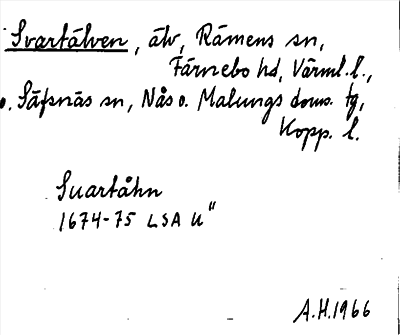 Svartälven, älv, Rämens sn,
Färnebo hd, Värml. l.,
o. Säfsnäs sn, Nås o. Malungs doms. tg,
Kopp. l.
Suartåhn
1674-75 LSA U"
A.H.1966